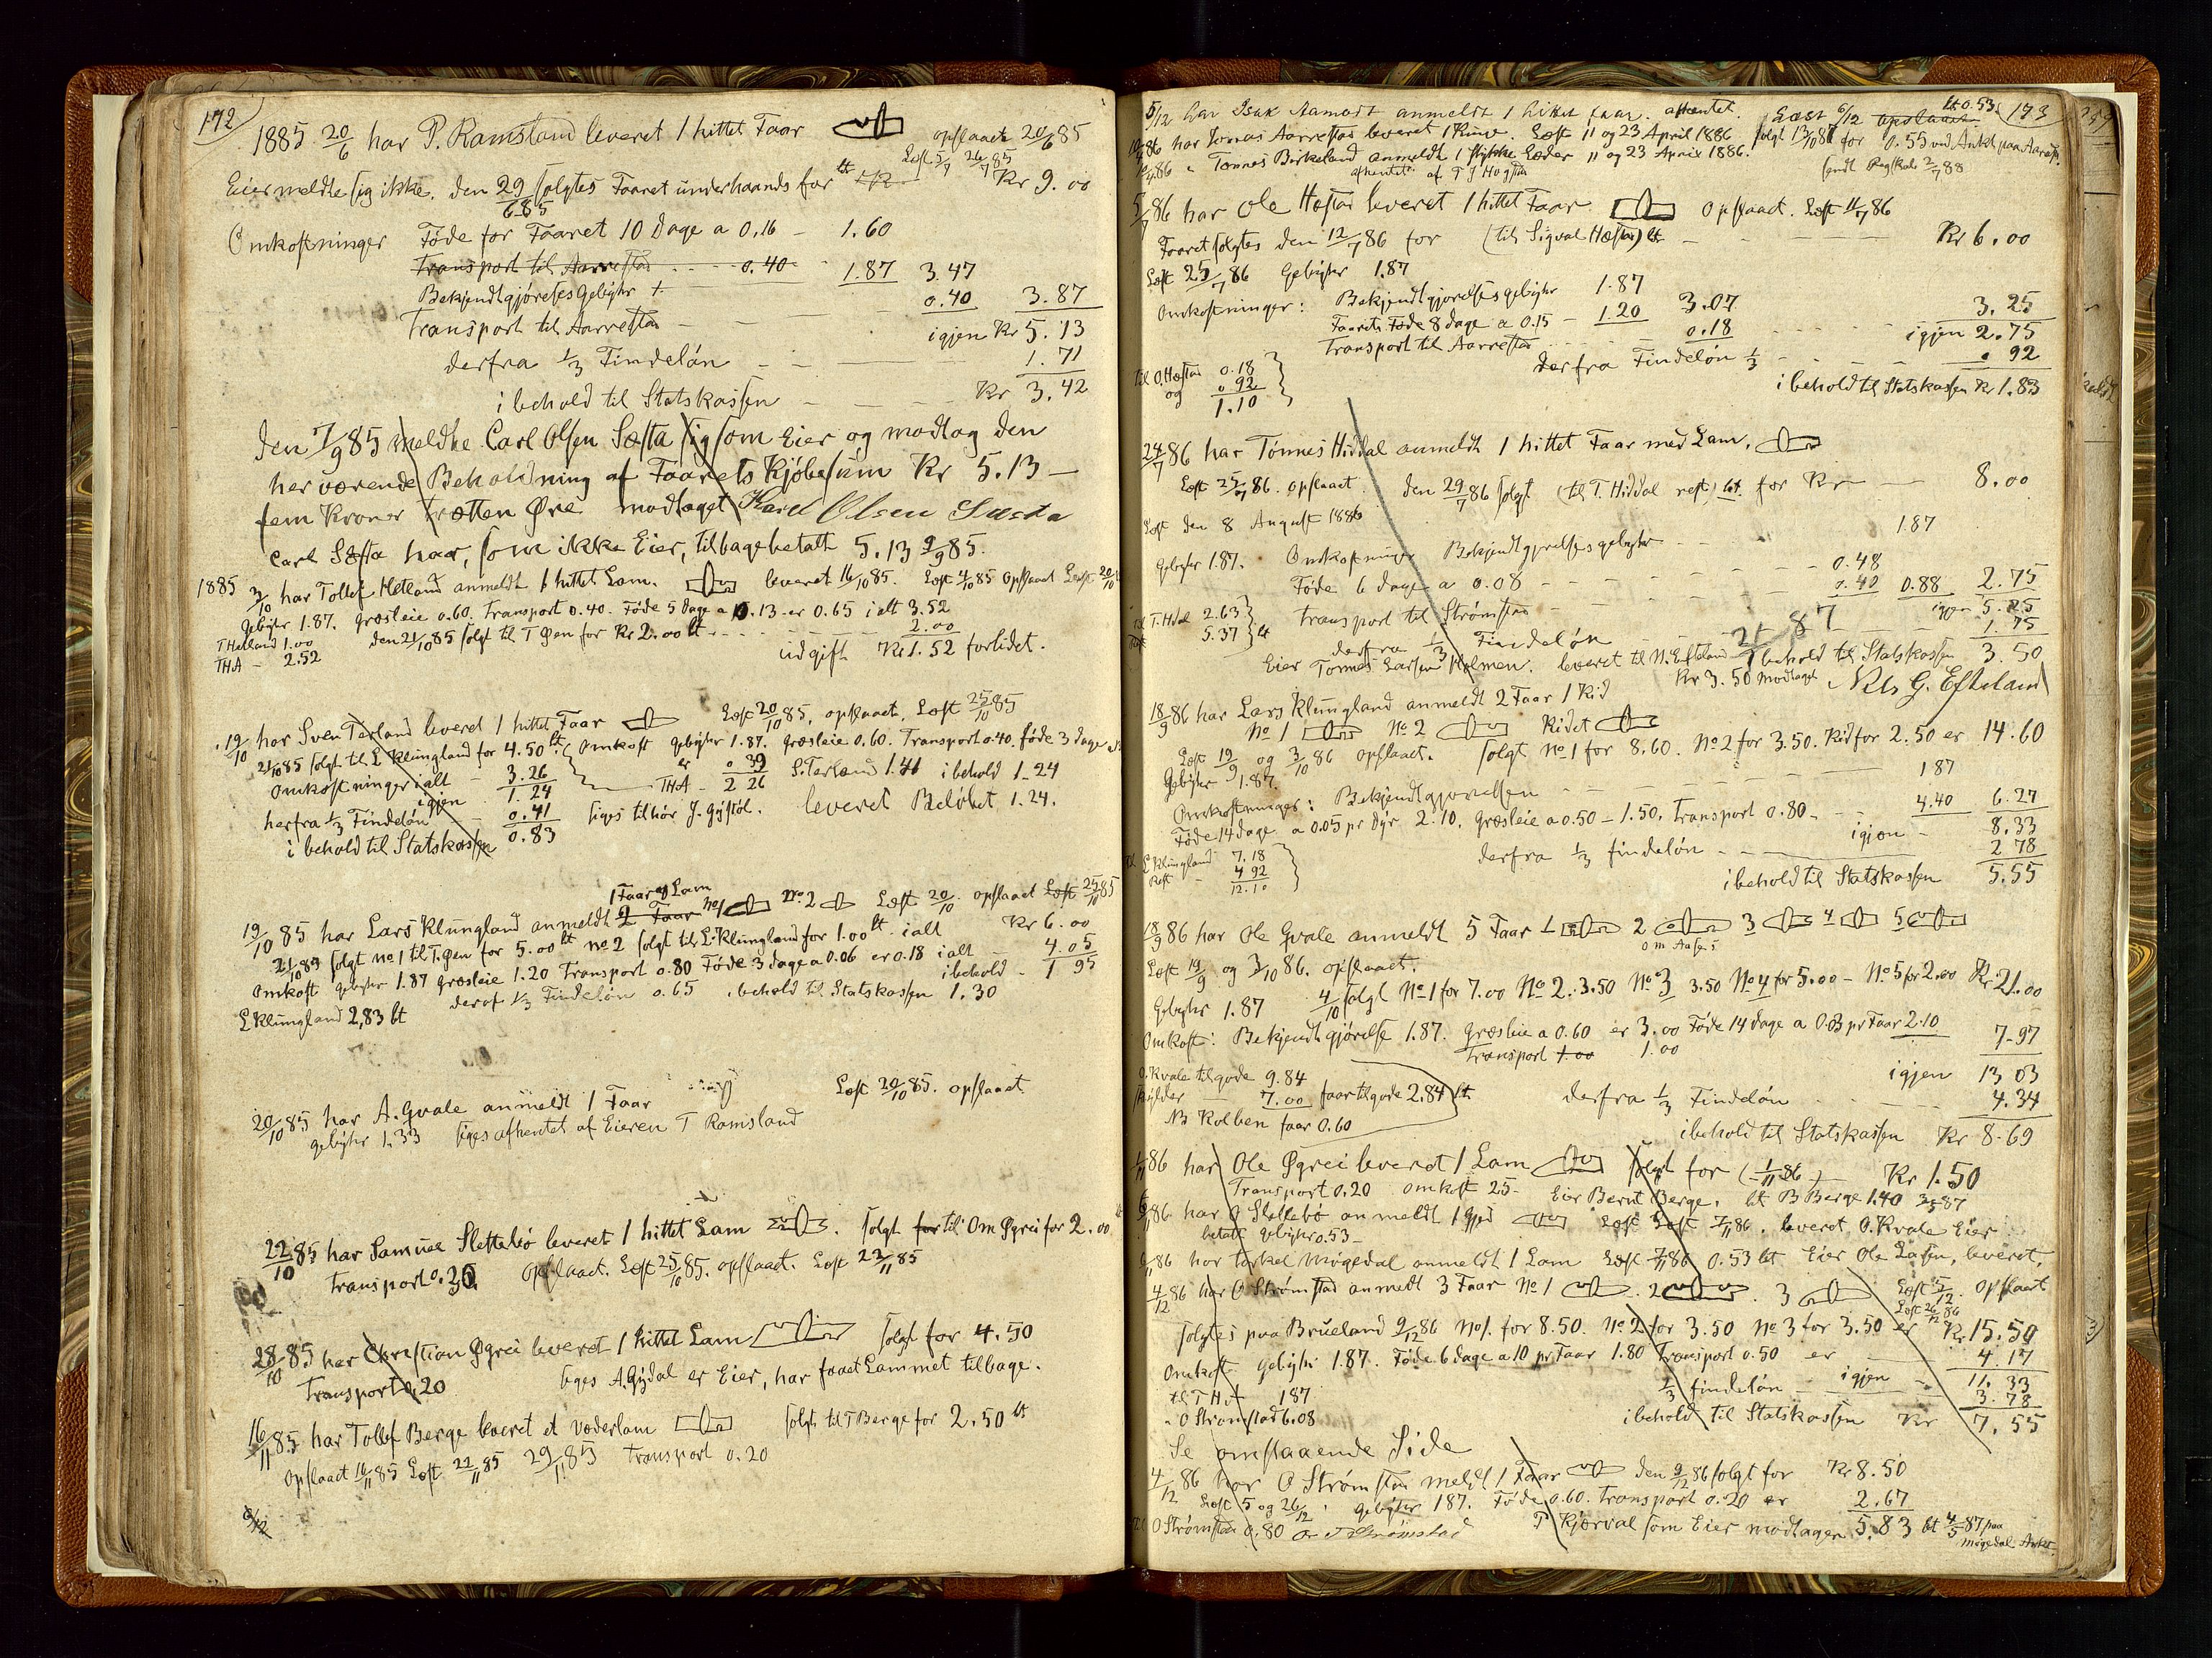 172
1885 20/6 har P. Ramsland leveret 1 hittet Faar opslaaet 20/6 85
Læst 5/7 26/7 85
Eier meldte sig ikke. den 29/6 85 solgtes Faaret underhaands for bt Kr 9.00
Omkostninger Føde for Faaret 10 dage a 0.16 - 1.60
Transport til Aarrestad 0.40
Bekjendtgjørelses Gebyhr 1.87 3.47
Transport til Aarrestad 0.40 3.87
igjen Kr 5.13
derfra 1/3 Findeløn 1.71
i behold til Statskassen Kr 3.42
den 7/9 85 meldte Carl Olsen Sæsta sig som Eier og modtog den
herværende Beholdning af Faarets Kjøbesum Kr 5.13 -
fem Kroner trætten Øre modtaget Karel Olsen Sæsta
Carl Sæsta har, som ikke Eier, tilbagebetalt 5.13 9/9 85.
1885 3/10 har Tollef Hetland anmeldt 1 hittet Lam. leveret 16/10 85. Læst 4/10 85 opslaaet Læst 20/10
Gebyhr 1.87. Græsleie 0.60. Transport 0.40. Føde 5 dage a 0.13 er 0.65 i alt 3.52
T Hetland 1.00 den 21/10 85 solgt til T Øen for Kr 2.00 bt 2.00
THA - 2.52 udgift Kr 1.52 forlidet.
19/10 har Sven Terland leveret 1 hittet Faar Læst 20/10 85, opslaaet, Læst 25/10 85
21/10 85 solgt til L Klungland for 4.50 bt Omkost gebyhr 1.87. Græsleie 0.60. Transport 0.40. føde 3 dage
Omkostninger ialt 3.26 er 0 39 S. Terland 1.41 i behold 1.24
igjen 1.24 THA - 2 26
herfra 1/3 Findeløn 0.41 siges tilhør J. Gystøl. leveret Beløbet 1.24.
i behold til Statskassen 0.83
1 Faar og Lam
19/10 85 har Lars Klungland anmeldt 2 Faar No 1 No 2 Læst 20/10 opslaaet Læst 25/10 85
21/10 85 solgt No 1 til T. Øen for 5.00 bt No 2 solgt til L. Klungland for 1.00 bt. i alt Kr 6.00
Omkost gebyhr 1.87 Græsleie 1.20 Transport 0.80 Føde 3 dage a 0.06 er 0.18 i alt 4.05
i behold 1 95
L Klungland 2,83 bt deraf 1/3 Findeløn 0.65 i behold til Statskassen 1.30
20/10 85 har A. Gvale anmeldt 1 Faar Læst 20/10 85. opslaaet
gebyhr 1.33 siges afhentet af Eieren T Ramsland
22/10 85 har Samuel Slettebø leveret 1 hittet Lam. solgt for til Om Øgrei for 2.00
Transport 0.30 opslaaet. Læst 25/10 85. opslaaet. Læst 22/11 85
28/10 85 har Christian Øgrei leveret 1 hittet Lam solgt for 4.50
Transport 0.20 siges A. Gydal er Eier, har faaet Lammet tilbage.
16/11 85 har Tollef Berge leveret et Væderlam solgt til T Berge for 2.50 bt
Opslaaet 16/11 85 Læst 22/11 85 29/11 85 Transport 0.20
6/12
173
5/12 har Isak Ramost anmeldt 1 hittet faar. afhentet. Læst 6/12 opslaaet bt 0.53
10/4 86 har Tønnes Aarrestad leveret 1 Kniv. Læst 11 og 23 April 1886 solgt 13/10 86 for 0.55 ved Auktl paa Aarrest.
10/4 86 Tønnes Birkeland anmeldt 1 stykke Læder 11 og 23 April 1886.
afhentet af T J Hogstad sendt Regskab 2/7 88
5/7 86 har Ole Hæstad leveret 1 hittet Faar. Opslaaet. Læst 11/7 86
Faaret solgtes den 12/7 86 for (til Sigval Hæstad) bt Kr 6.00
Læst 25/7 86 Gebyhr 1.87
Omkostninger: Bekjendtgjørelsesgebyhr 1.87
Faarets Føde 8 dage a 0.15 - 1.20 3.07
Transport til Aarrestad 0.18 3.25
igjen 2.75
til O. Hæstad 0.18 derfra Findeløn 1/3 0 92
og 0 92 i behold til Statskassen Kr 1.83
1.10
24/7 86 har Tønnes Hiddal anmeldt 1 hittet Faar med Lam.
Læst 25/7 86. opslaaet. den 29/7 86 solgt (til T. Hiddal rest) bt. for Kr 8.00
Læst den 8 August 1886
Gebyhr 1.87. Omkostninger Bekjendtgjørelsesgebyhr 1.87
Føde 6 dage a 0.08 0.48
Transport til Strømstad 0.40 0.88 2.75
T. Hdal 2.63 igjen 5.25
5.37 derfra 1/3 Findeløn 1.75
Eier Tønnes Larsen Holmen. leveret til N. Efteland i behold til Statskassen 3.50
Kr 3.50 modtaget Nils G. Efteland
18/9 86 har Lars Klungland anmeldt 2 Faar 1 Kid
No 1 No 2 Kidet
Læst 19/9 og 3/10 86 opslaaet. solgt No 1 for 8.60. No 2 for 3.50. Kid for 2.50 er 14.60
Gebyhr 1.87.
Omkostninger: Bekjendtgjørelsen 1 87
Føde 14 dage a 0.05 pr dyr 2.10, Græsleie a 0.50 - 1.50. Transport 0.80 4.40 6.27
igjen 8.33
L Klungland 7.18 derfra 1/3 findeløn 2 78
Rest 4 92 i behold til Statskassen 5.55
12.10
18/9 86 har Ole Gvale anmeldt 5 Faar 1 2 3 4 5
Læst 19/9 og 3/10 86. opslaaet.
Gebyhr 1.87 4/10 solgt No 1 for 7.00 No 2. 3.50 No 3 3.50 No 4 for 5.00 - No 5 pr 2.00 Kr 21.00
Omkost: Bekjendtgjørelse 1.87. Græsleie a 0.60 er 3.00 Føde 14 dage a 0.03 pr Faar 2.10
Transport 1.00 1.00 7.97
O. Kvale tilgode 9.84 igjen 13 03
skylder 7.00 faar tilgode 2.84 bt. derfra 1/3 Findeløn 4.34
NB Kolben faar 0.60 i behold til Statskassen Kr 8.69
1/11 86 har Ole Øgrei leveret 1 Lam solgt for (1/11 86) Kr 1.50
Transport 0.20 omkost 25 - Eier Bernt Berge. bt B Berge 1.40
6/11 86 har O Slettebø anmeldt 1 Gjed Læst 7/11 86. leveret O. Kvale Eier
betalt gebyhr 0.53 -
6/11 86 har Torkel Møgedal anmeldt 1 Lam Læst 7/11 86 0.53 bt Eier Ole Lassen, leveret.
4/12 86 har O Strømstad anmeldt 3 Faar No 1 2 3 Læst 5/12. opslaaet
Læst 26/12 86
solgtes paa Brueland 9/12 86 No 1. for 8.50. No 2 for 3.50 No 3 for 3.50 er Kr 15.50
Omkost gebyhr 1.87. Føde 6 dage a 10 pr Faar 1.80 Transport 0.50 er 4.17
til T H A 187 igjen 11.33
O Strømstad 6.08 1/3 findeløn 3.78
i behold til Statskassen Kr 7.55
Se omstaaende Side
4/12 86 har O Strømstad meldt 1 Faar den 9/12 86 solgt for Kr 8.50
Læst 5 og 26/12. gebyhr 187. Føde 0.60. Transport 0.20 er 2.67
O Strømstad 0.80 T Kjørval som Eier modtager 5.83 bt 4/5 87 paa
Møgedal Aukt.